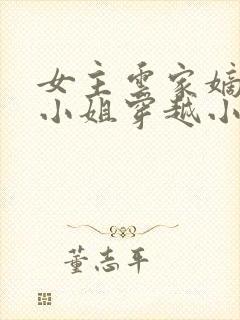 女主云家嫡
小姐穿越小
董志平